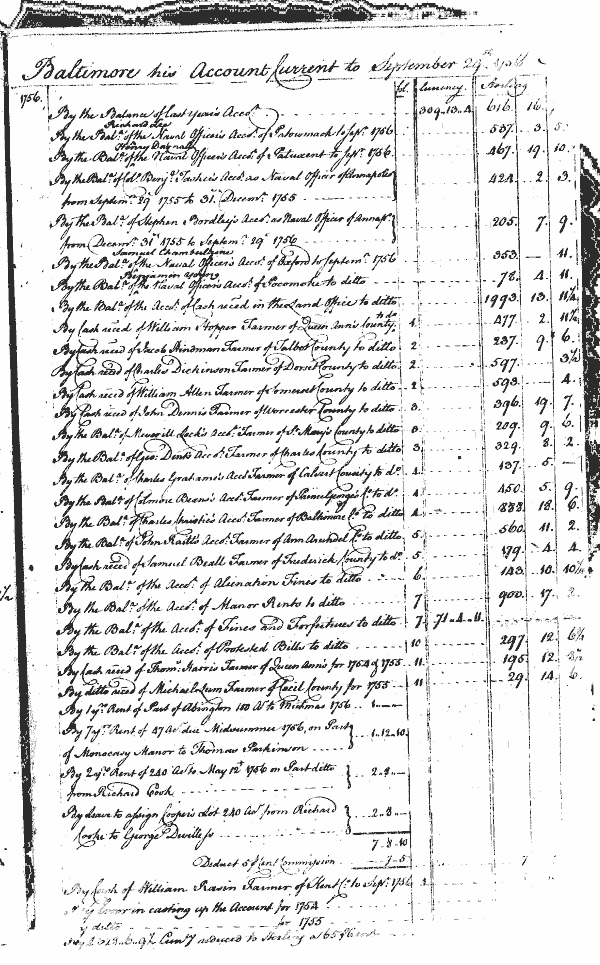 Baltimore his Account Current to September 29th 1756
fd. Currency Sterling
1756. By the Balance of Last Year's Acco.t 309..13..4 616. 16.
Richard Lee
By the Bal.ce of the Naval Officer's Acco.t of Patowmack to Sep.r 1756 537. 3. 5.
Henry Darnall
By the Bal.ce of the Naval Officer's Acco.t of Patuxent to Sep.r 1756 467. 19. 10.
By the Bal.ce of Col. Benj.n Tasker's Acco.t as Naval Officer of Annapolis 424. 2. 3.
from Septem.r 29.th 1755 to 31.st Decem.r 1755
By the Bal.ce of Stephen Bordley's Acco.t as Naval Officer of Annap.s 205. 7. 9.
from Decem.r 31st 1755 to Septem.r 29.th 1756
Samuel Chamberlaine
By the Bal.ce of the Naval Officer's Acco.t of Oxford to Septem.r 1756 353. — 11.
Benjamin
By the Bal.ce of the Naval Officer's Acco.t of Pocomoke to ditto 78. 4. 11.
By the Bal.ce of the Acco.t of Cash reced in the Land Office to ditto 1993. 13. 11½
By Cash reced of William Hopper Farmer of Queen Ann's County, to do 1. 477. 2. 11½
By Cash reced of Jacob Hindman Farmer of Talbot County to ditto 2. 237. 9. 6.
By Cash reced of Charles Dickinson Farmer of Dorset County to ditto 2. 597. — 3½
By Cash reced of William Allen Farmer of Somerset County to ditto 2. 593. — 4.
By Cash reced of John Dennis Farmer of Worcester County to ditto 3. 396. 19. 7.
By the Bal.ce of Meverill Lock's Acco.t Farmer of St. Mary's County to ditto 3. 209. 9. 6.
By the Bal.ce of Geo: Dent's Acco.t Farmer of Charles County to ditto 3. 329. 8. 2.
By the Bal.ce of Charles Grahame's Acco.t Farmer of Calvert County to do. 4. 137. 5. —
By the Bal.ce of Colmore Beans's Acco.t Farmer of Prince George's Co. to do. 4. 450. 5. 9.
By the Bal.ce of Charles Christie's Acco.t Farmer of Baltimore Co. to ditto 4. 888. 18. 6.
By the Bal.ce of John Raitt's Acco.t Farmer of Ann Arundel Co. to ditto 5. 560. 11. 2.
By Cash reced of Samuel Beall Farmer of Frederick County to do. 5. 4. 4.
By the Bal.ce of the Acco.t of Alienation Fines to ditto 6. 143. 10. 10½
By the Bal.ce of the Acco.t of Manor Rents to ditto 7 900. 17. 2.
By the Bal.ce of the Acco.t of Fines and Forfeitures to ditto 7. 71..4..11.
By the Bal.ce of the Acco.t of Protested Bills to ditto 10 297. 12. 6½
By Cash reced of Thom.s Harris Farmer of Queen Ann's for 1754 & 1755 11. 195. 12. 3½
By ditto reced of Michael Farmer of Cecil County for 1755 11 29. 14. 6.
By 1 y.rs Rent of Part of Abington 100 A.s to Michmas 1756 1..—..—
By 7 y.rs Rent of 47 A.s due Midsummer 1756, on Part 1..12..10.
of Monocasy Manor to Thomas Parkinson
By 2 y.rs Rent of 240 A.s to May 12.th 1756 on Part ditto 2..8..—
from Richard Cook
By leave to assign Cooper's Lot 240 A.s from Richard 2..8..—
Cooke to George Devilbess
7..8..10
Deduct 5 P Cent Commission ..7..5 7
By Cash of William Rasin Farmer of Kent Co. to Sep.r 1756 3
By Error in casting up the Account for 1754
By ditto for 1755
Curr.y reduced to Sterling at 65 P Cent